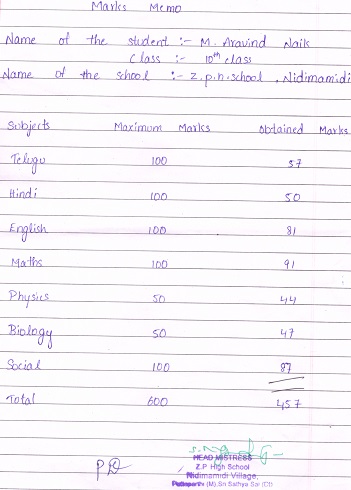 Marks Memo
Name of the student :- M. Aravind Naik
Class :- 10th class
Name of the school :- Z.p.h.school , Nidimamidi
Subjects Maximum Marks Obtained Marks
Telugu 100 57
Hindi 100 50
English 100 81
Maths 100 91
Physics 50 44
Biology 50 47
Social 100 87
Total 600 457
HEAD MISTRESS
Z.P High School
Nidimamidi Village,
Puttaparthi (M) Sri Sathya Sai (Dt)